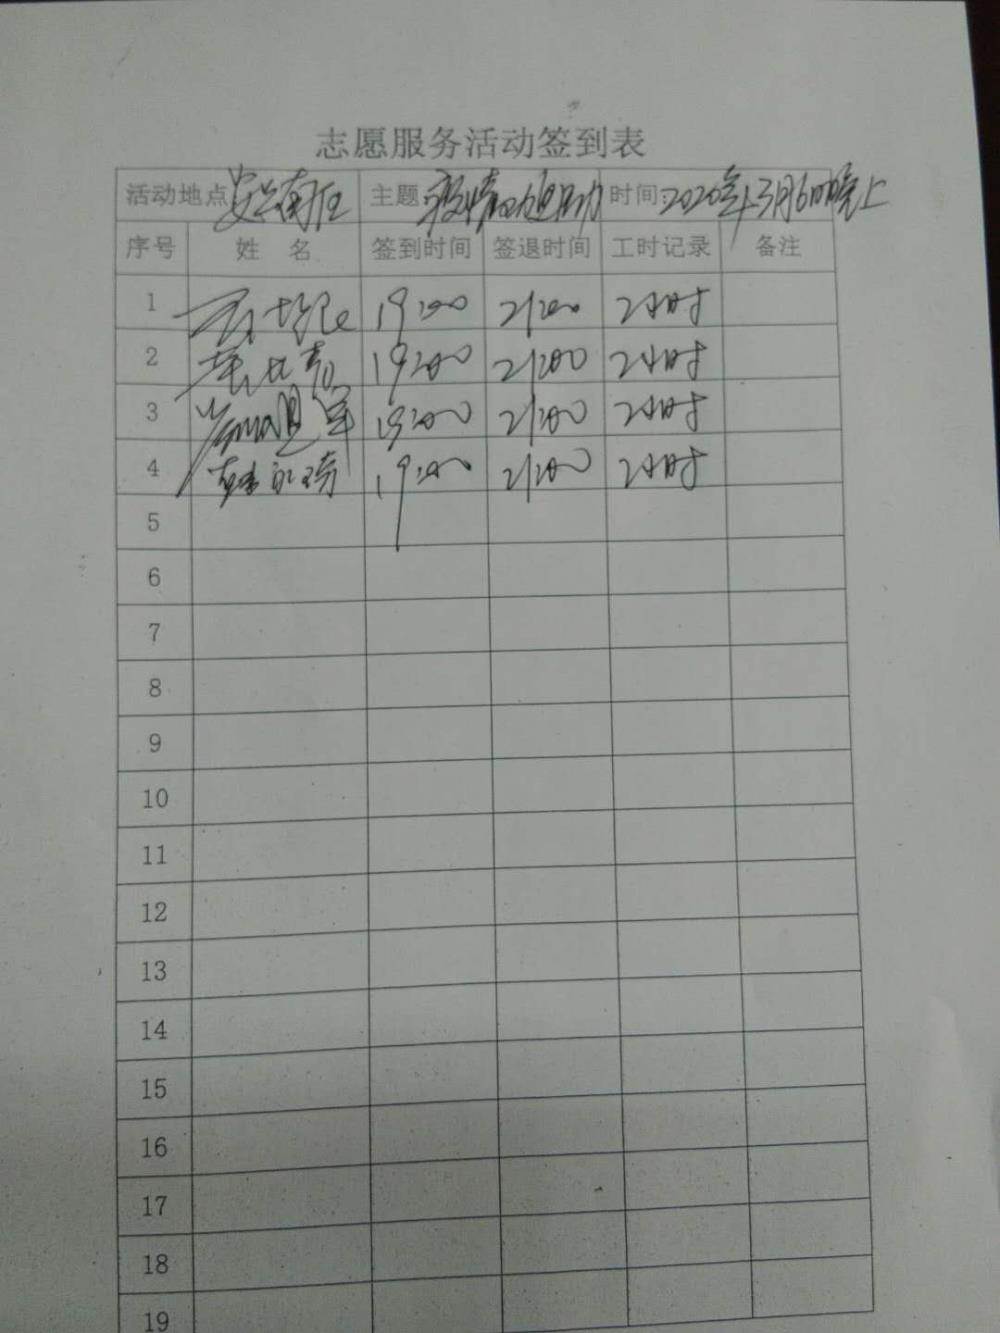 志愿服务活动签到表
活动地点 安兴南区 主题 疫情 时间:2020年3月6日晚上
序号 姓 名 签到时间 签退时间 工时记录 备注
1 19:00 21:00 2小时
2 19:00 21:00 2小时
3 19:00 21:00 2小时
4 19:00 21:00 2小时
5
6
7
8
9
10
11
12
13
14
15
16
17
18
19